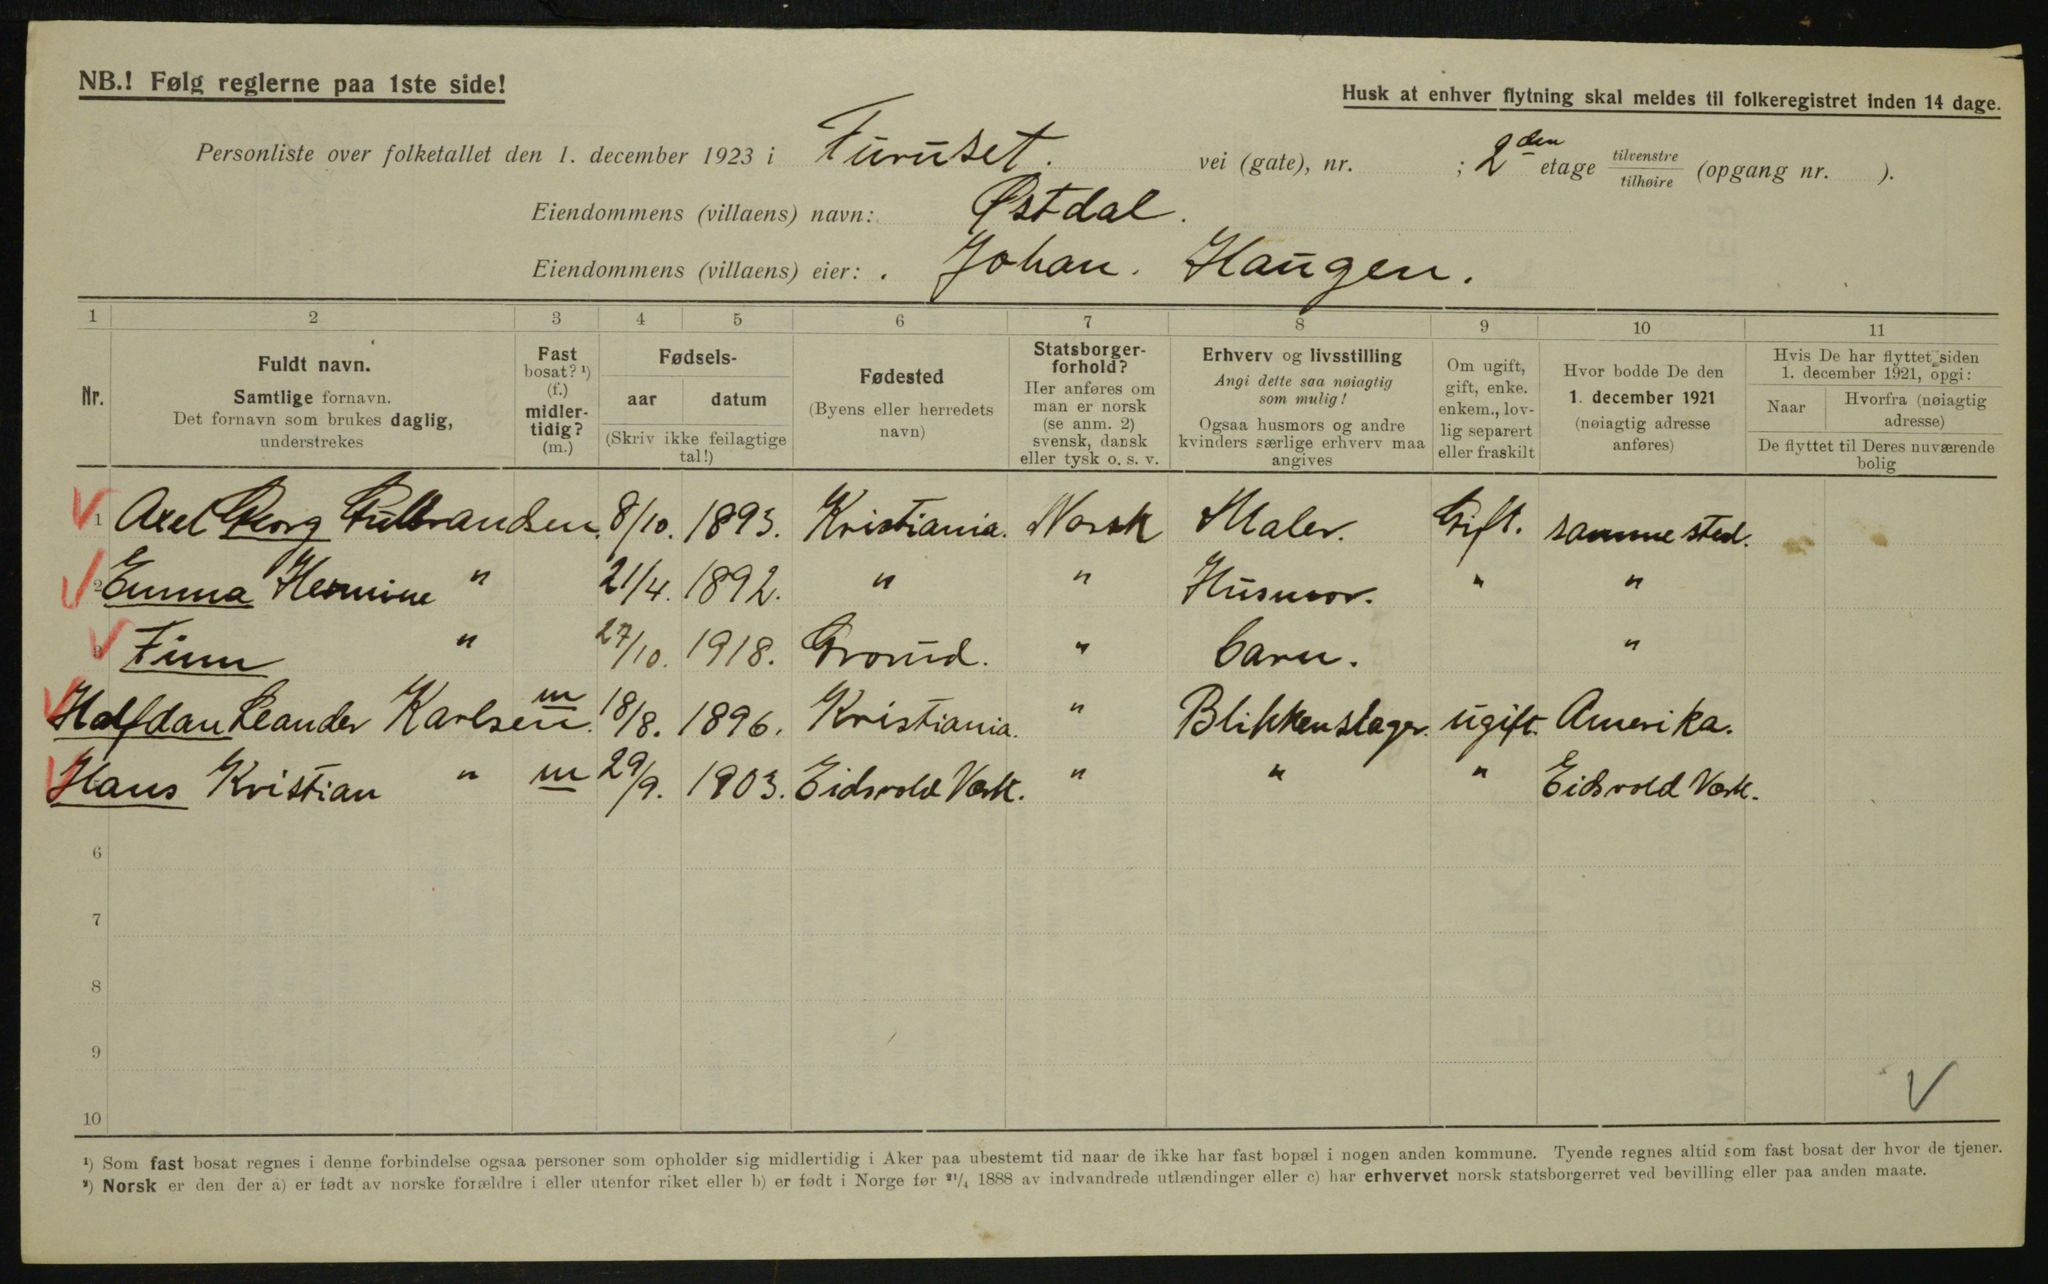 NB.! Følg reglerne paa 1ste side!
Husk at enhver flytning skal meldes til folkeregistret inden 14 dage.
Personliste over folketallet den 1. december 1923 i Furuset. vei (gate), nr. ; 2den etage tilvenstre/tilhøire (opgang nr. ).
Eiendommens (villaens) navn: Østdal.
Eiendommens (villaens) eier: . Johan. Haugen.
1 2 3 4 5 6 7 8 9 10 11
Nr.
Fuldt navn.
Samtlige fornavn.
Det fornavn som brukes daglig,
understrekes
Fast
bosat? ¹)
(f.)
midler-
tidig?
(m.)
Fødsels-
aar datum
(Skriv ikke feilagtige
tal!)
Fødested
(Byens eller herredets
navn)
Statsborger-
forhold?
Her anføres om
man er norsk
(se anm. 2)
svensk, dansk
eller tysk o. s. v.
Erhverv og livsstilling
Angi dette saa nøiagtig
som mulig!
Ogsaa husmors og andre
kvinders særlige erhverv maa
angives
Om ugift,
gift, enke.
enkem., lov-
lig separert
eller fraskilt
Hvor bodde De den
1. december 1921
(nøiagtig adresse
anføres)
Hvis De har flyttet siden
1. december 1921, opgi:
Naar Hvorfra (nøiagtig
adresse)
De flyttet til Deres nuværende
bolig
1 Axel Georg Gulbrandsen. 8/10. 1893. Kristiania. Norsk Maler. Gift. samme sted.
2 Emma Hermine " 21/4. 1892. " " Husmor. " "
3 Finn " 27/10. 1918. Grorud. " barn. "
Halfdan Leander Karlsen. m 18/8. 1896. Kristiania. " Blikkenslager. ugift. Amerika.
Hans Kristian " m 29/9. 1903. Eidsvold Værk. " " " Eidsvold Værk.
6
7
8
9
10
¹) Som fast bosat regnes i denne forbindelse ogsaa personer som opholder sig midlertidig i Aker paa ubestemt tid naar de ikke har fast bopæl i nogen anden kommune. Tyende regnes altid som fast bosat der hvor de tjener.
²) Norsk er den der a) er født av norske forældre i eller utenfor riket eller b) er født i Norge før ²¹/₄ 1888 av indvandrede utlændinger eller c) har erhvervet norsk statsborgerret ved bevilling eller paa anden maate.